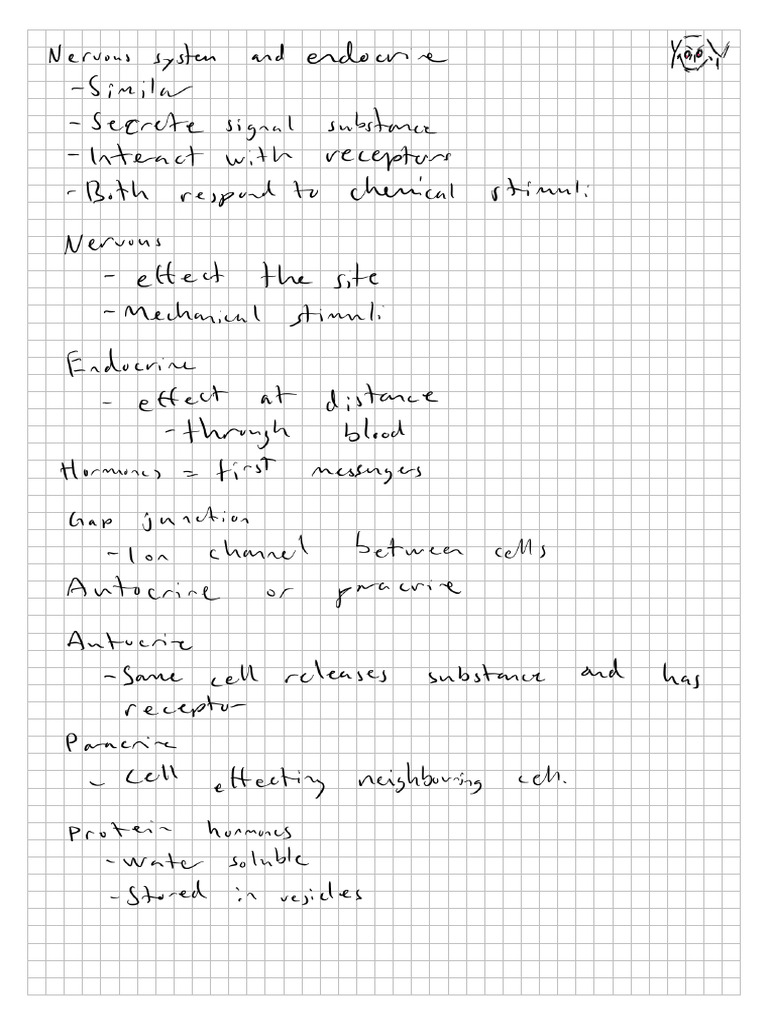 Nervous system and endocrine
- Similar
- Secrete signal substance
- Interact with receptors
- Both respond to chemical stimuli
Nervous
- effect the site
- Mechanical stimuli
Endocrine
- effect at distance
- through blood
Hormones = first messengers
Gap junction
- Ion channel between cells
Autocrine or paracrine
Autocrine
- Same cell releases substance and has
receptor
Paracrine
- Cell effecting neighbouring cell.
Protein hormones
- Water soluble
- Stored in vesicles